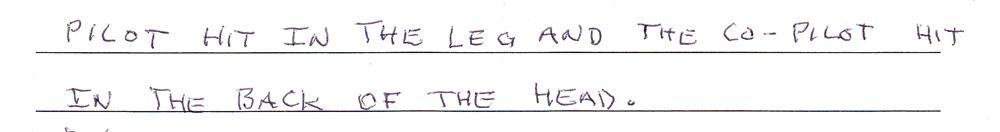 PILOT HIT IN THE LEG AND THE CO-PILOT HIT
IN THE BACK OF THE HEAD.